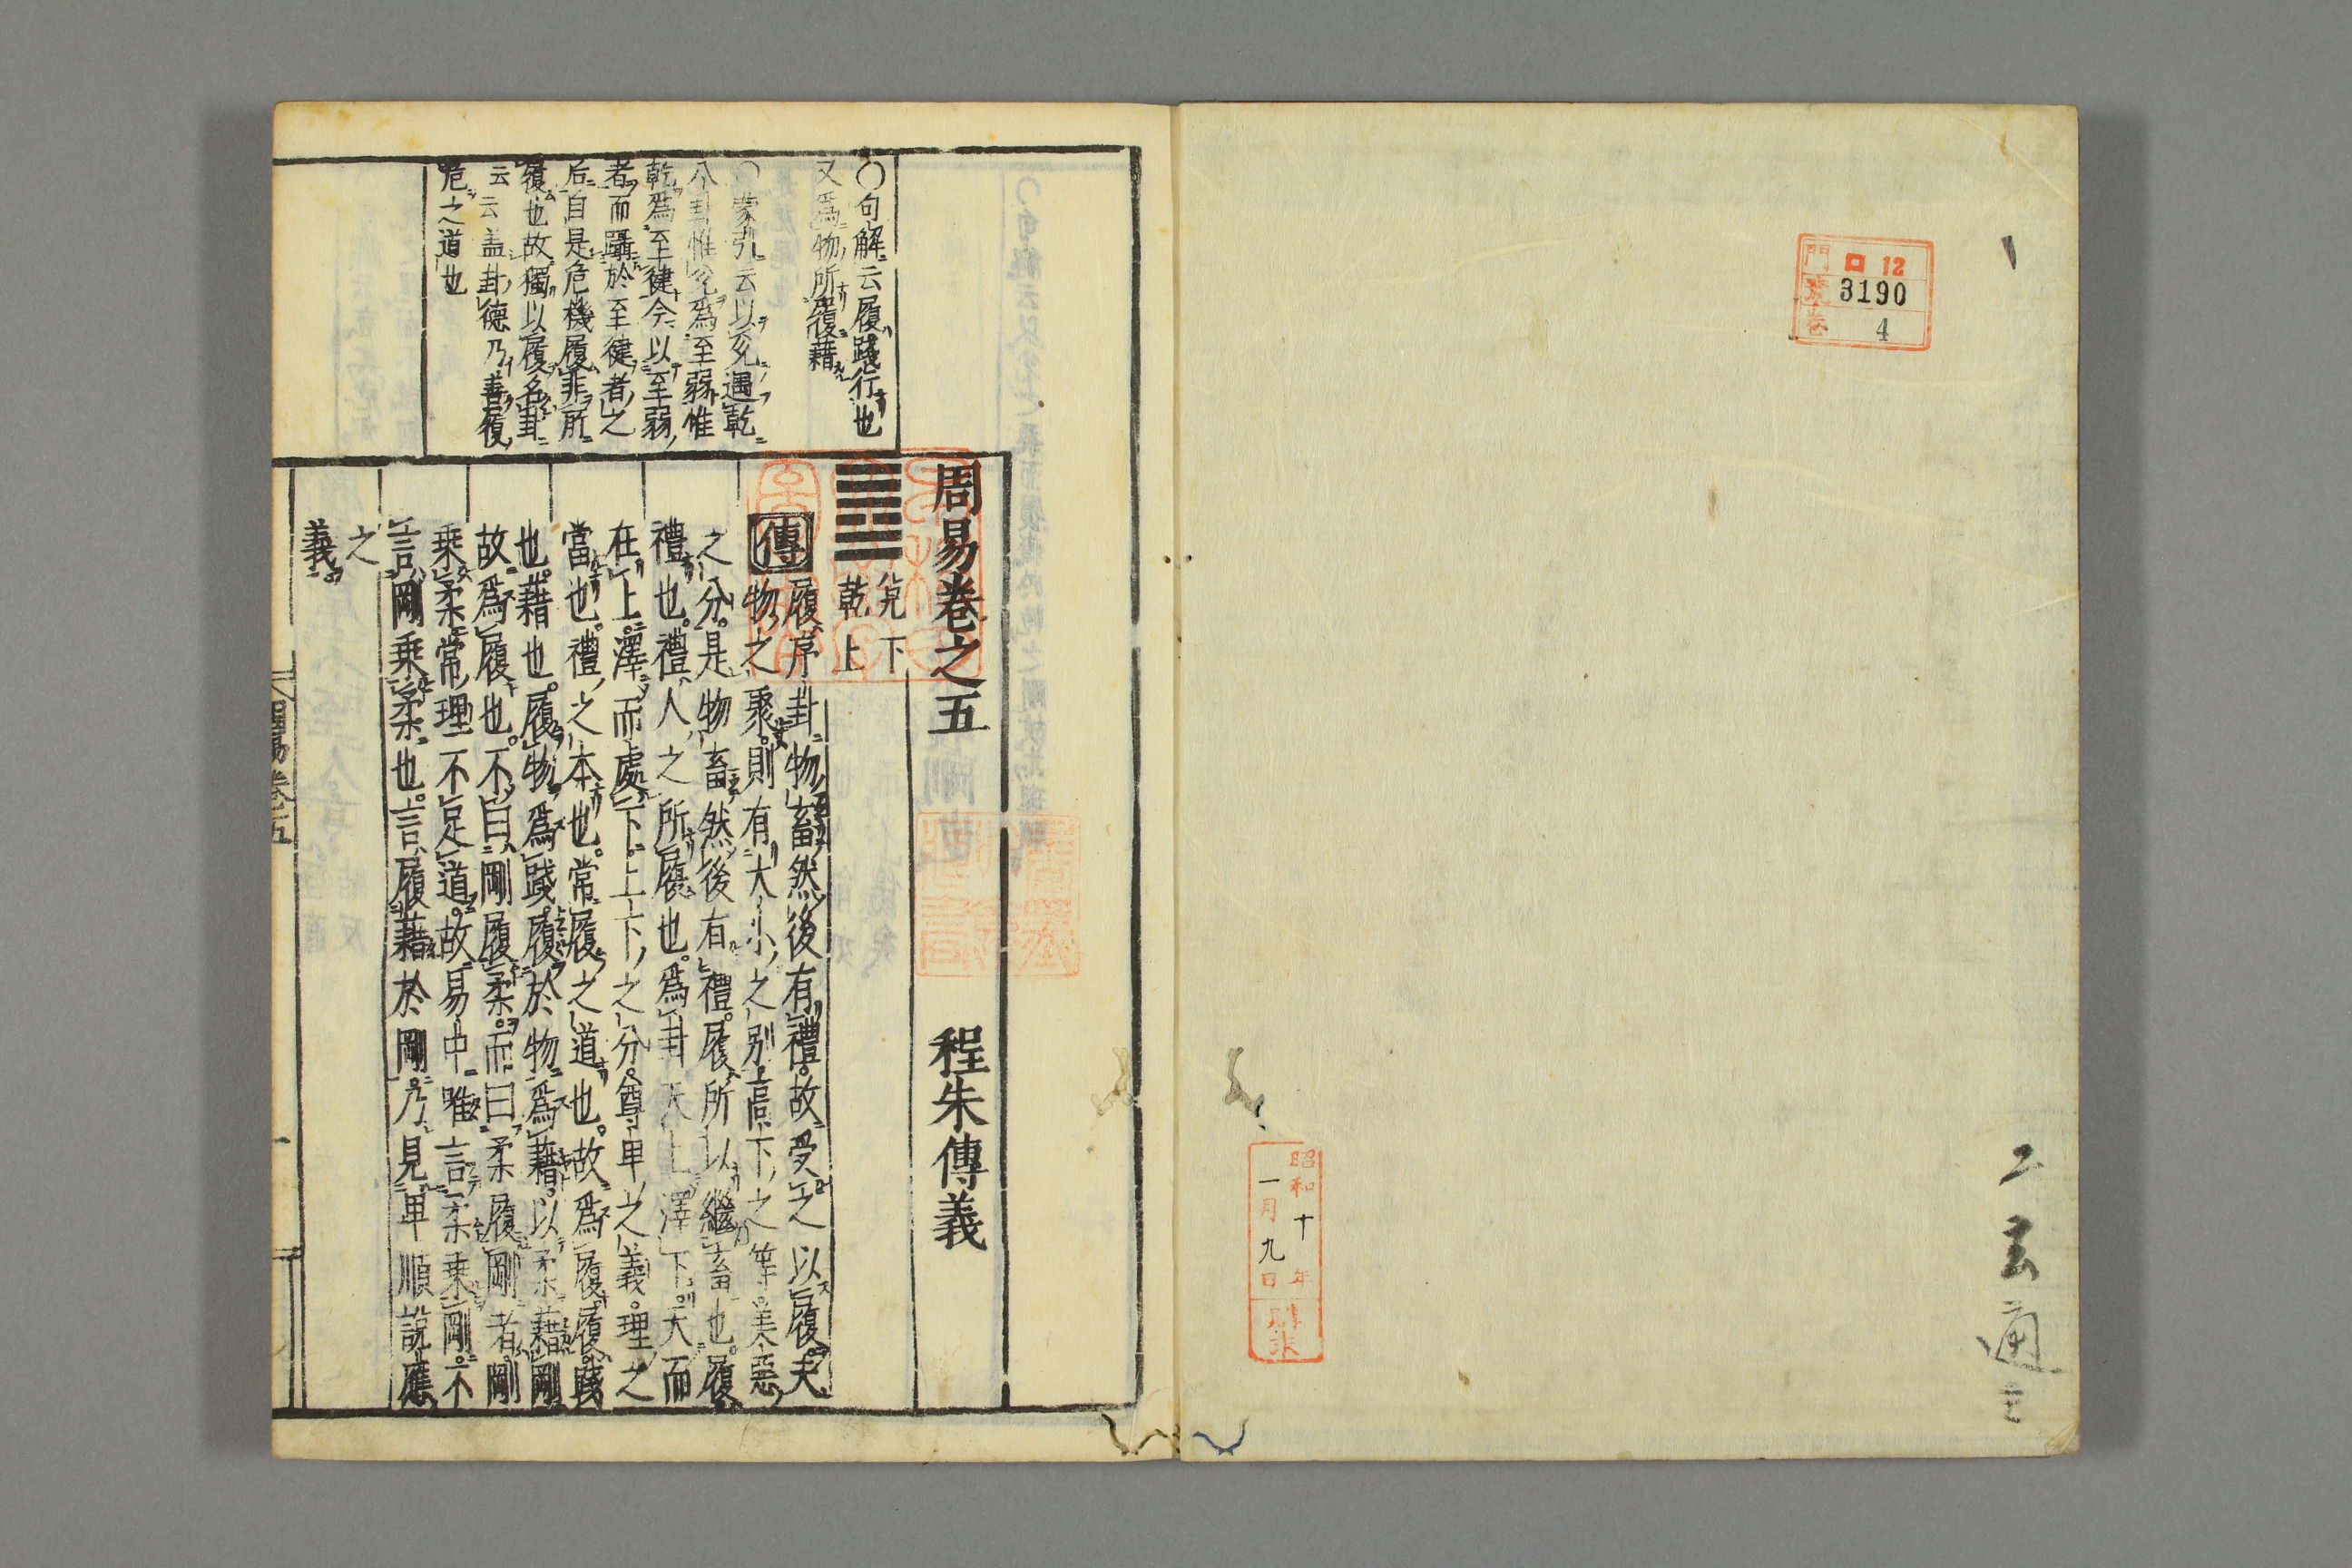 門 ロ 12
號 3190
卷 4
昭和十年
一月九日
購求
周易卷之五
程朱傳義
兌下
乾上
傳
履序卦物畜然後有禮故受之以履夫
物之聚則有大小之別高下之等美惡
之分是物畜然後有禮履所以繼畜也履
禮也禮人之所履也爲卦天上澤下天而
在上澤而處下上下之分尊卑之義理之
當也禮之本也常履之道也故爲履履踐
也藉也履物爲踐履於物爲藉以柔藉剛
故爲履也不曰剛履柔而曰柔履剛者剛
乘柔常理不足道故易中唯言柔乘剛不
言剛乘柔也言履藉於剛乃見卑順説應
之
義
〇句解云履踐行也
又爲物所履藉
〇蒙引云以兌遇乾
八卦惟兌爲至弱惟
乾爲至健今以至弱
者而躡於至健者之
后自是危機履非所
履也故獨以履名卦
云云盖卦德乃善履
危之道也
周易卷五
一